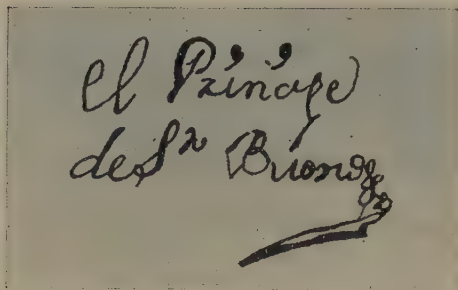 el Principe
de Sn Buono